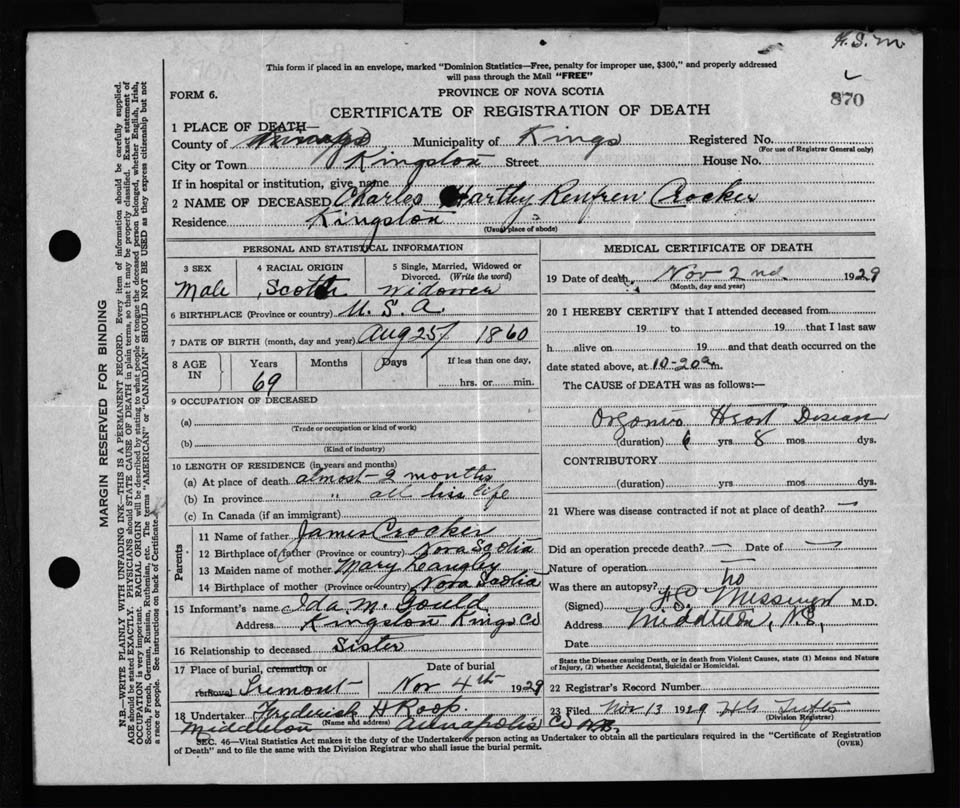 H. S. M.
This form if placed in an envelope, marked "Dominion Statistics—Free, penalty for improper use, $300," and properly addressed
will pass through the Mail "FREE"
870
FORM 6.
PROVINCE OF NOVA SCOTIA
CERTIFICATE OF REGISTRATION OF DEATH
1 PLACE OF DEATH—
County of Municipality of Kings Registered No.
(For use of Registrar General only)
City or Town Kingston Street House No.
If in hospital or institution, give name
2 NAME OF DECEASED Charles Hartley Renfrew Crocker
Residence Kingston
(Usual place of abode)
PERSONAL AND STATISTICAL INFORMATION
3 SEX 4 RACIAL ORIGIN 5 Single, Married, Widowed or
Divorced. (Write the word)
Male Scotch Widower
6 BIRTHPLACE (Province or country) U. S. A.
7 DATE OF BIRTH (month, day and year) Aug 25/ 1860
8 AGE IN Years Months Days If less than one day,
69 hrs. or min.
9 OCCUPATION OF DECEASED
(a)
(Trade or occupation or kind of work)
(b)
(Kind of industry)
10 LENGTH OF RESIDENCE (in years and months)
(a) At place of death almost 2 months
(b) In province " all his life
(c) In Canada (if an immigrant)
Parents
11 Name of father James Crocker
12 Birthplace of father (Province or country) Nova Scotia
13 Maiden name of mother Mary Langley
14 Birthplace of mother (Province or country) Nova Scotia
15 Informant's name Ida M. Gould
Address Kingston Kings Co
16 Relationship to deceased Sister
17 Place of burial, cremation or Date of burial
removal Tremont Nov 4th 1929
18 Undertaker Frederick H Roop.
(Name and address)
Middleton Annapolis Co N.S.
MEDICAL CERTIFICATE OF DEATH
19 Date of death Nov 2nd 1929
(Month, day and year)
20 I HEREBY CERTIFY that I attended deceased from
19 to 19 that I last saw
h alive on 19 and that death occurred on the
date stated above, at 10-20 a m.
The CAUSE of DEATH was as follows:—
Organic Heart Disease
(duration) 6 yrs 8 mos. dys.
CONTRIBUTORY
(duration) yrs mos. dys.
21 Where was disease contracted if not at place of death? —
Did an operation precede death? — Date of —
Nature of operation
Was there an autopsy? no
(Signed) F. S. Messenger M.D.
Address Middleton, N.S,
Date
State the Disease causing Death, or in death from Violent Causes, state (1) Means and Nature
of Injury, (2) whether Accidental, Suicidal or Homicidal.
22 Registrar's Record Number
23 Filed Nov 13 1929 Tufts
(Division Registrar)
SEC. 46—Vital Statistics Act makes it the duty of the Undertaker or person acting as Undertaker to obtain all the particulars required in the "Certificate of Registration
of Death" and to file the same with the Division Registrar who shall issue the burial permit. (OVER)
MARGIN RESERVED FOR BINDING
N.B.—WRITE PLAINLY WITH UNFADING INK—THIS IS A PERMANENT RECORD. Every item of information should be carefully supplied.
AGE should be stated EXACTLY. PHYSICIANS should STATE CAUSE OF DEATH in plain terms, so that it may be properly classified. Exact statement of
OCCUPATION is very important. RACIAL ORIGIN will be described by stating to what people or tongue the deceased person belonged, whether English, Irish,
Scotch, French, German, Russian, Ruthenian, etc. The terms "AMERICAN" or "CANADIAN" SHOULD NOT BE USED as they express citizenship but not
a race or people. See instructions on back of Certificate.